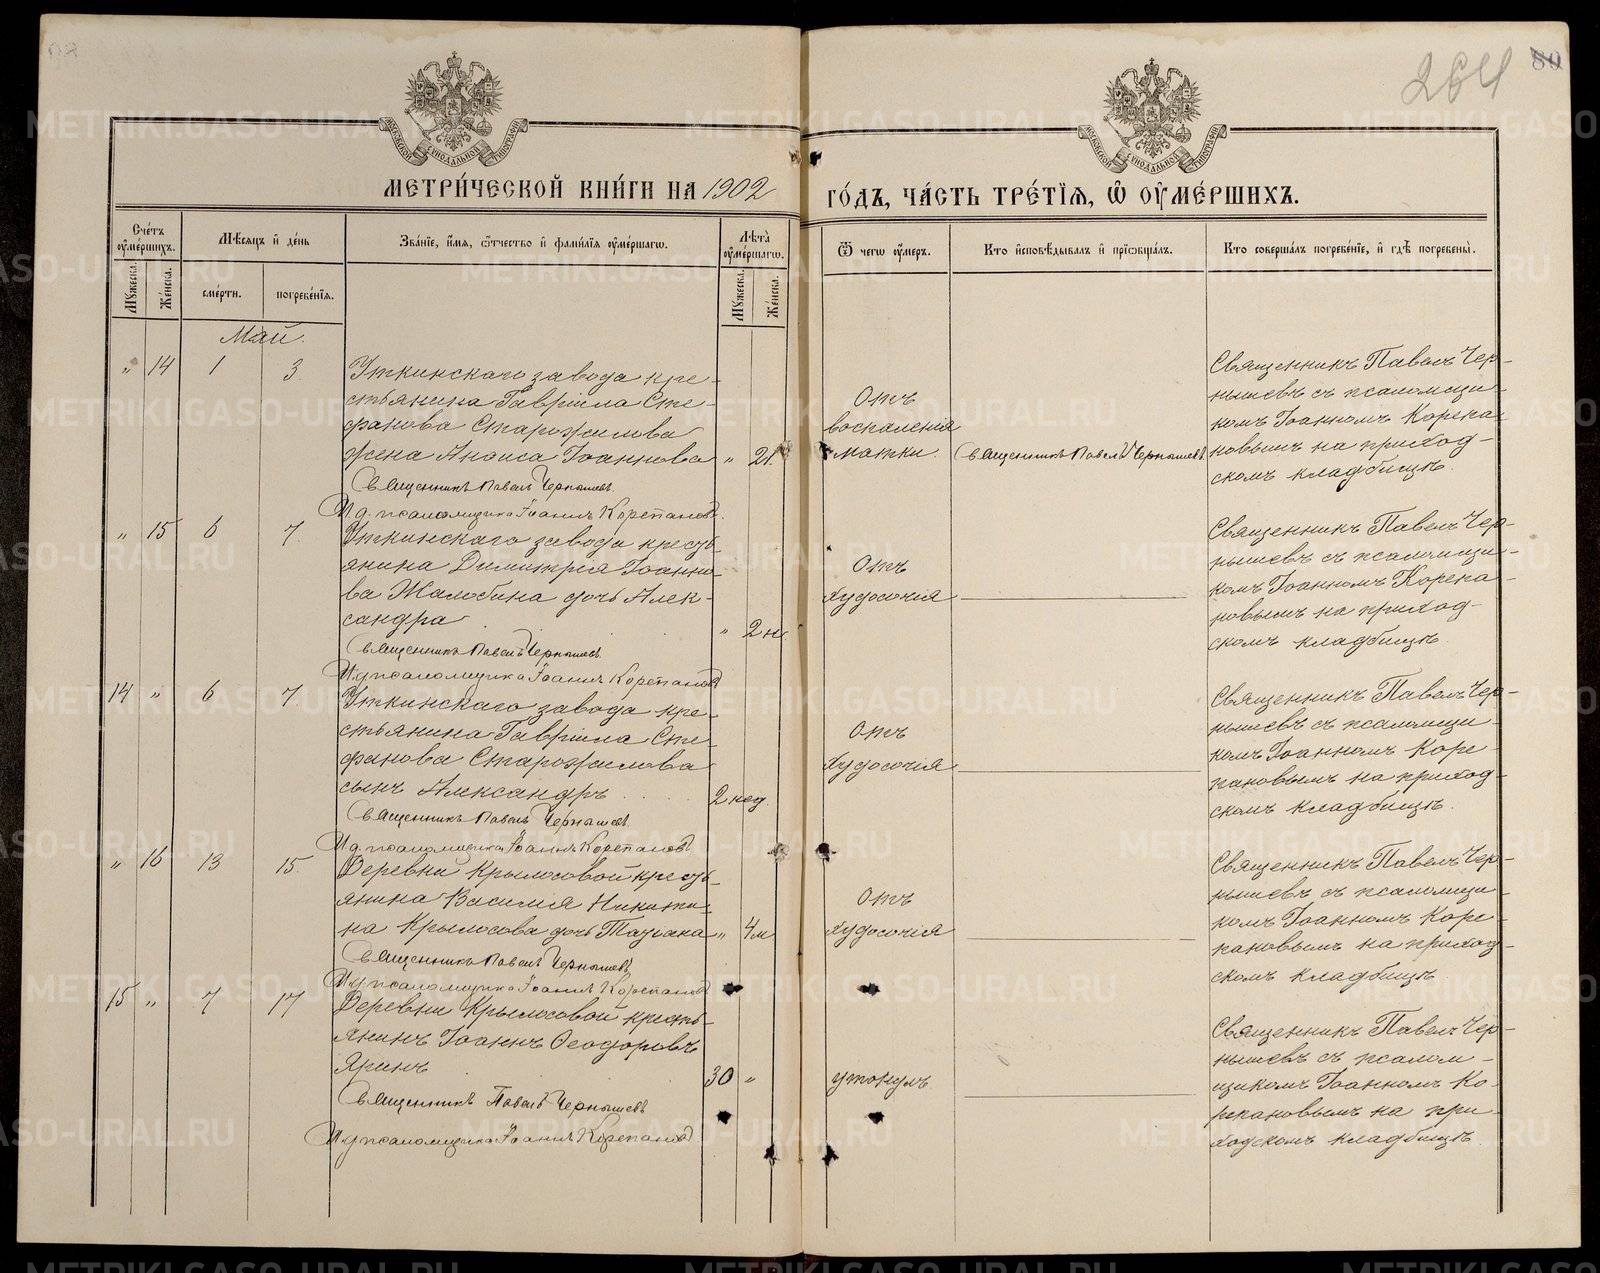 264
80
МЕТРИ́ЧЕСКОЙ КНИ́ГИ НА 1902 ГО́ДЪ, ЧА́СТЬ ТРЕ́ТІѦ, Ѡ ОУМЕ́РШИХЪ.
Сче́тъ оуме́ршихъ.
Мꙋжеска.
Же́нска.
Мѣсѧцъ и́ де́нь
сме́рти.
погребе́нїѧ.
Зва́нїе, и́мѧ, ѻ҆́тчество и́ фами́лїѧ оуме́ршагѡ.
Лѣта̀ оуме́ршагѡ.
Мꙋжеска.
Же́нска.
Ѿ чегѡ̀ оу́меръ.
Кто̀ и҆сповѣ́дывалъ и҆ прїѡбща́лъ.
Кто̀ соверша́лъ погребе́нїе, и҆ гдѣ̀ погребены̀.
Май.
" 14 1 3
Уткинскаго завода кре-
стьянина Гавріила Сте-
фанова Старожилова
жена Анисья Іоаннова " 21.
Священникъ Павелъ Чернышевъ.
И.д. псаломщика Іоаннъ Корепановъ.
Отъ
воспаленія
матки.
Священникъ Павелъ Чернышевъ
Священникъ Павелъ Чер-
нышевъ съ псаломщи-
комъ Іоанномъ Корепа-
новымъ на приход-
скомъ кладбищѣ.
" 15 6 7.
Уткинскаго завода кресть-
янина Димитрія Іоанно-
ва Жалобина дочь Алек-
сандра " 2 н.
Священникъ Павелъ Чернышевъ.
И.д. псаломщика Іоаннъ Корепановъ
Отъ
худосочія
Священникъ Павелъ Чер-
нышевъ съ псаломщи-
комъ Іоанномъ Корепа-
новымъ на приход-
скомъ кладбищѣ.
14 " 6 7.
Уткинскаго завода кре-
стьянина Гавріила Сте-
фанова Старожилова
сынъ Александръ 2 нед.
Священникъ Павелъ Чернышевъ.
И.д. псаломщика Іоаннъ Корепановъ
Отъ
худосочія
Священникъ Павелъ Чер-
нышевъ съ псаломщи-
комъ Іоанномъ Коре-
пановымъ на приход-
скомъ кладбищѣ.
" 16 13 15.
Деревни Крылосовой кресть-
янина Василія Никити-
на Крылосова дочь Татьяна " 4 м
Священникъ Павелъ Чернышевъ
И.д. псаломщика Іоаннъ Корепановъ
Отъ
худосочія
Священникъ Павелъ Чер-
нышевъ съ псаломщи-
комъ Іоанномъ Коре-
пановымъ на приход-
скомъ кладбищѣ.
15 " 7 17
Деревни Крылосовой кресть-
янинъ Іоаннъ Ѳеодоровъ
Яринъ 30 "
Священникъ Павелъ Чернышевъ
И.д. псаломщика Іоаннъ Корепановъ
утонулъ
Священникъ Павелъ Чер-
нышевъ съ псалом-
щикомъ Іоанномъ Ко-
репановымъ на при-
ходскомъ кладбищѣ.
METRIKI.GASO-URAL.RU